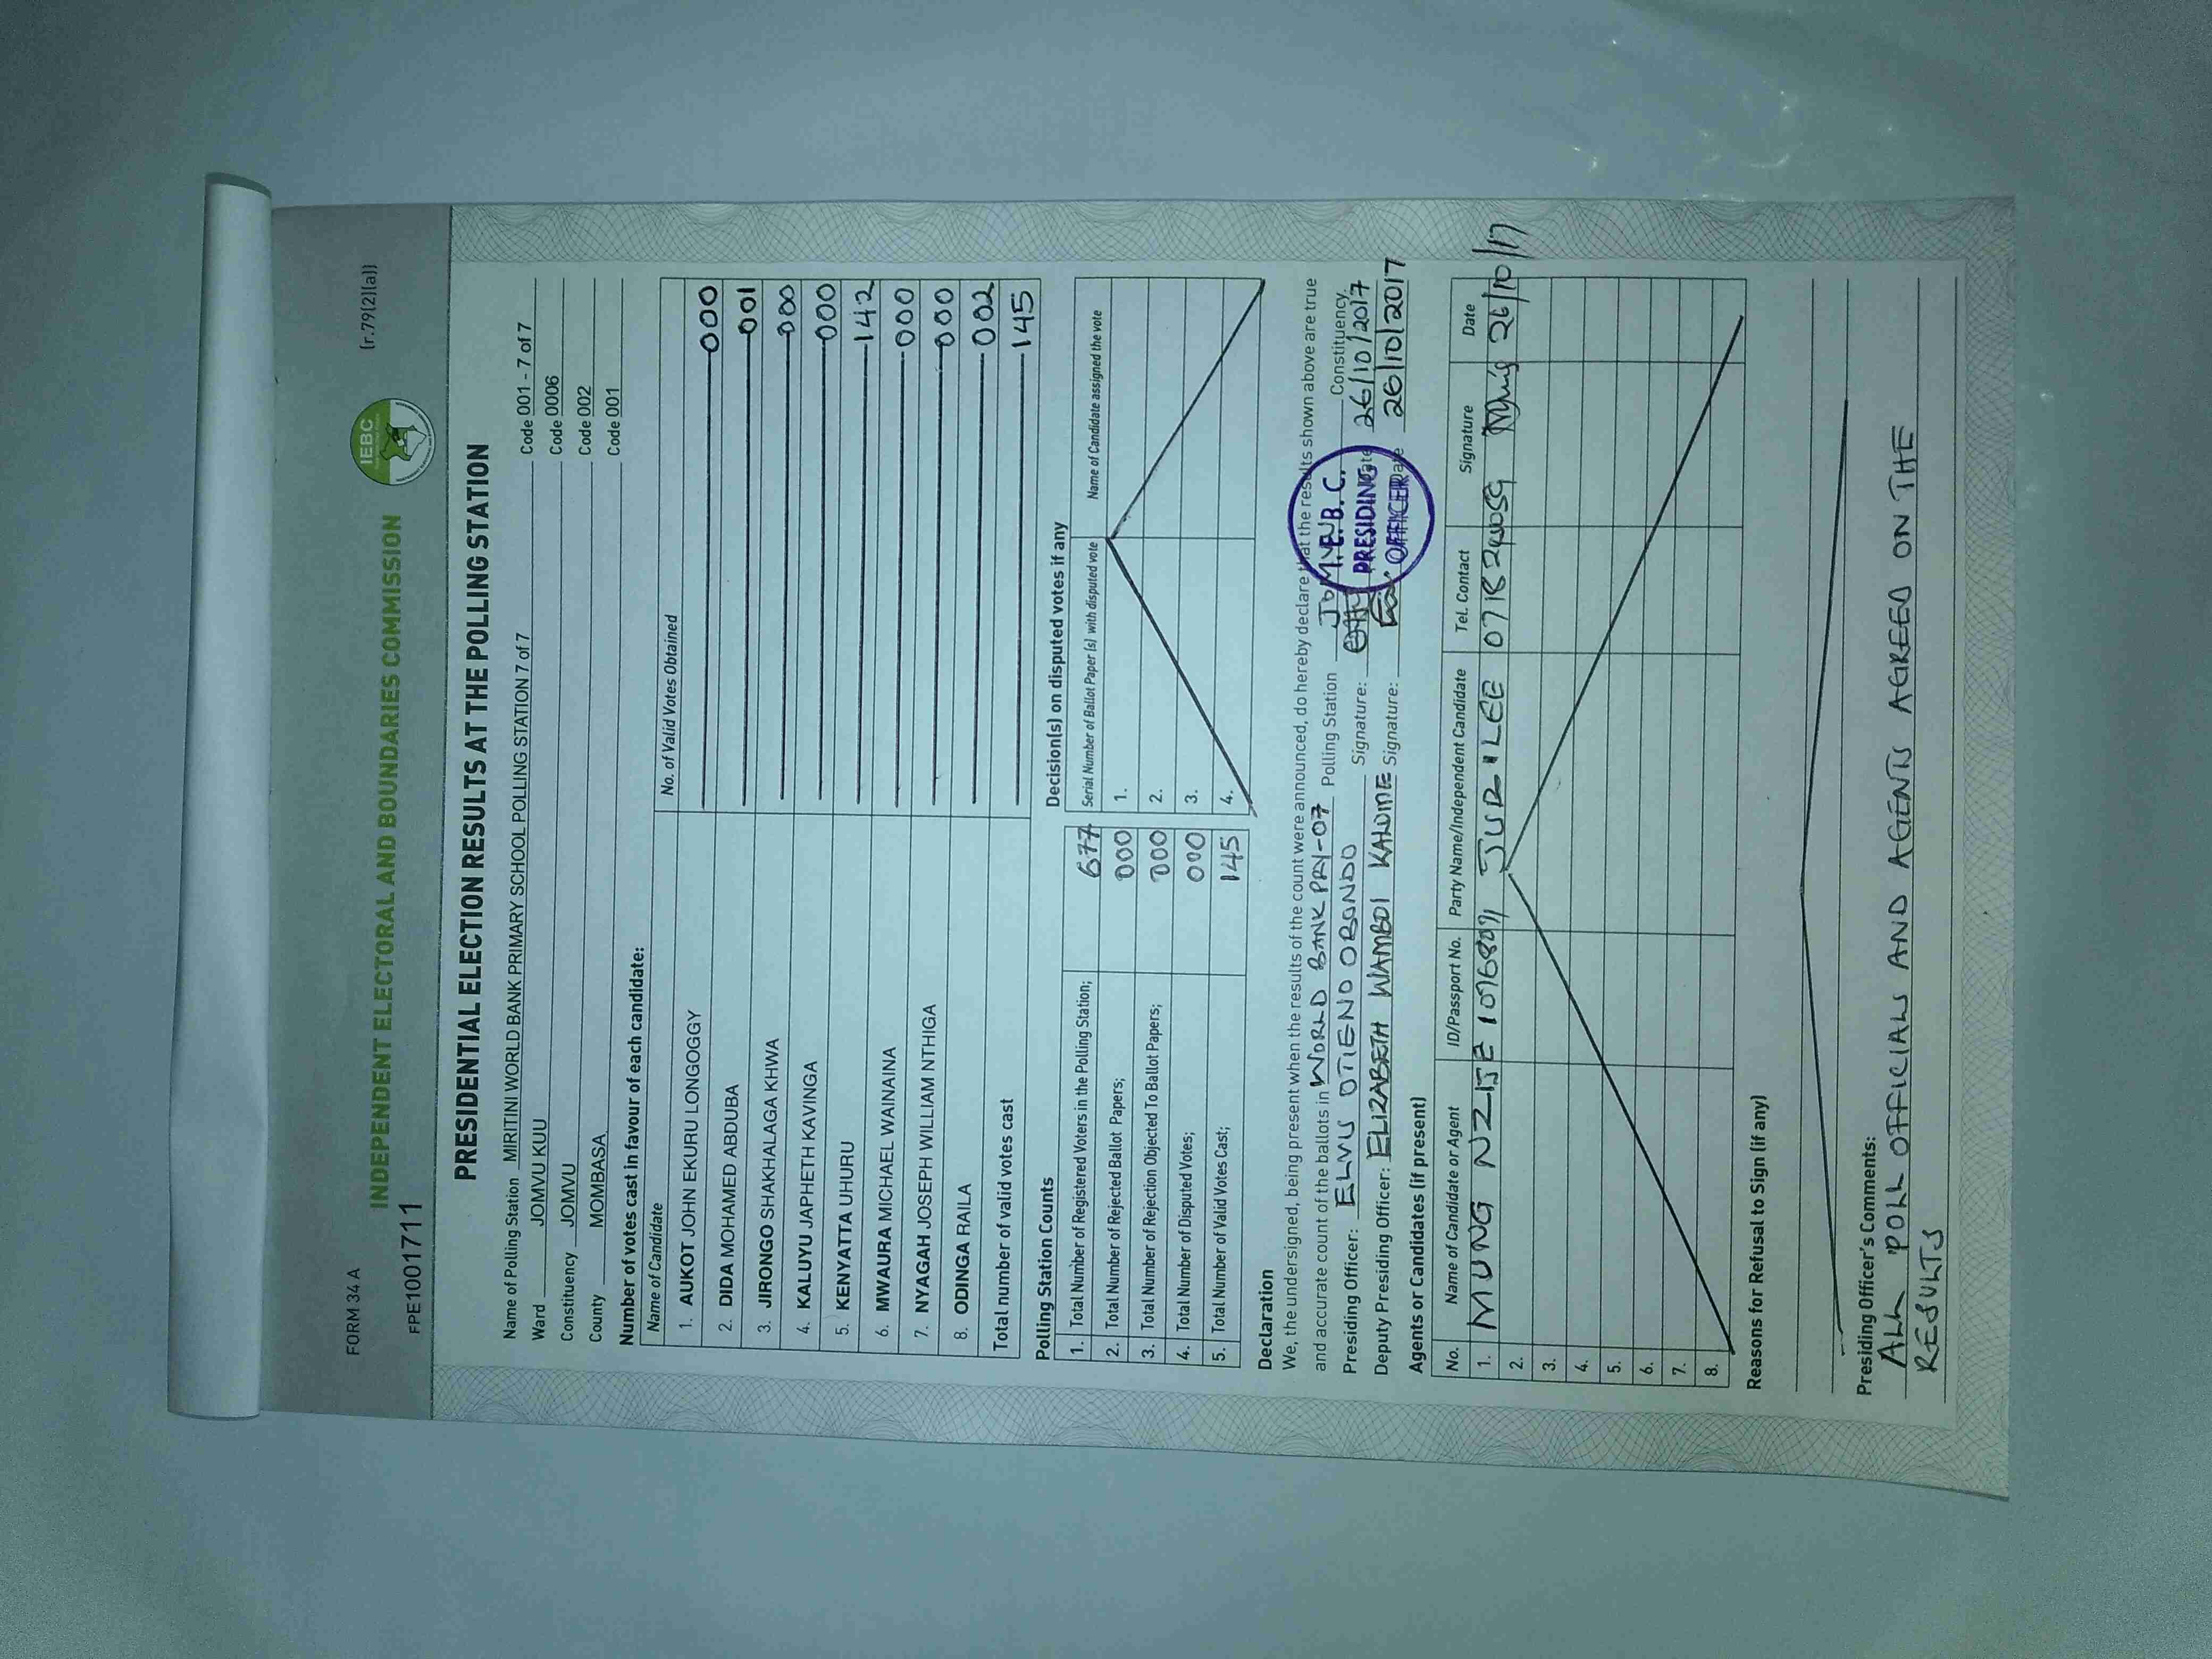 FORM 34 A
(r.79(2)(a))
IEBC
INDEPENDENT ELECTORAL AND BOUNDARIES COMMISSION
FPE1001711
PRESIDENTIAL ELECTION RESULTS AT THE POLLING STATION
Name of Polling Station MIRITINI WORLD BANK PRIMARY SCHOOL POLLING STATION 7 of 7 Code 001 - 7 of 7
Ward JOMVU KUU Code 0006
Constituency JOMVU Code 002
County MOMBASA Code 001
Number of votes cast in favour of each candidate:
Name of Candidate No. of Valid Votes Obtained
1. AUKOT JOHN EKURU LONGOGGY 000
2. DIDA MOHAMED ABDUBA 001
3. JIRONGO SHAKHALAGA KHWA 000
4. KALUYU JAPHETH KAVINGA 000
5. KENYATTA UHURU 142
6. MWAURA MICHAEL WAINAINA 000
7. NYAGAH JOSEPH WILLIAM NTHIGA 000
8. ODINGA RAILA 002
Total number of valid votes cast 145
Polling Station Counts
1. Total Number of Registered Voters in the Polling Station; 677
2. Total Number of Rejected Ballot Papers; 000
3. Total Number of Rejection Objected To Ballot Papers; 000
4. Total Number of Disputed Votes; 000
5. Total Number of Valid Votes Cast; 145
Decision(s) on disputed votes if any
Serial Number of Ballot Paper (s) with disputed vote Name of Candidate assigned the vote
1.
2.
3.
4.
Declaration
We, the undersigned, being present when the results of the count were announced, do hereby declare that the results shown above are true
and accurate count of the ballots in WORLD BANK PRY-07 Polling Station JOMVU Constituency.
Presiding Officer: ELVIS OTIENO OBONDO Signature: Date 26/10/2017
Deputy Presiding Officer: ELIZABETH WAMBOI Signature: Date 26/10/2017
I.E.B.C.
PRESIDING
OFFICER
Agents or Candidates (if present)
No. Name of Candidate or Agent ID/Passport No. Party Name/Independent Candidate Tel. Contact Signature Date
1. JUBILEE 26/10/17
2.
3.
4.
5.
6.
7.
8.
Reasons for Refusal to Sign (if any)
Presiding Officer's Comments:
ALL POLL OFFICIALS AND AGENTS AGREED ON THE
RESULTS